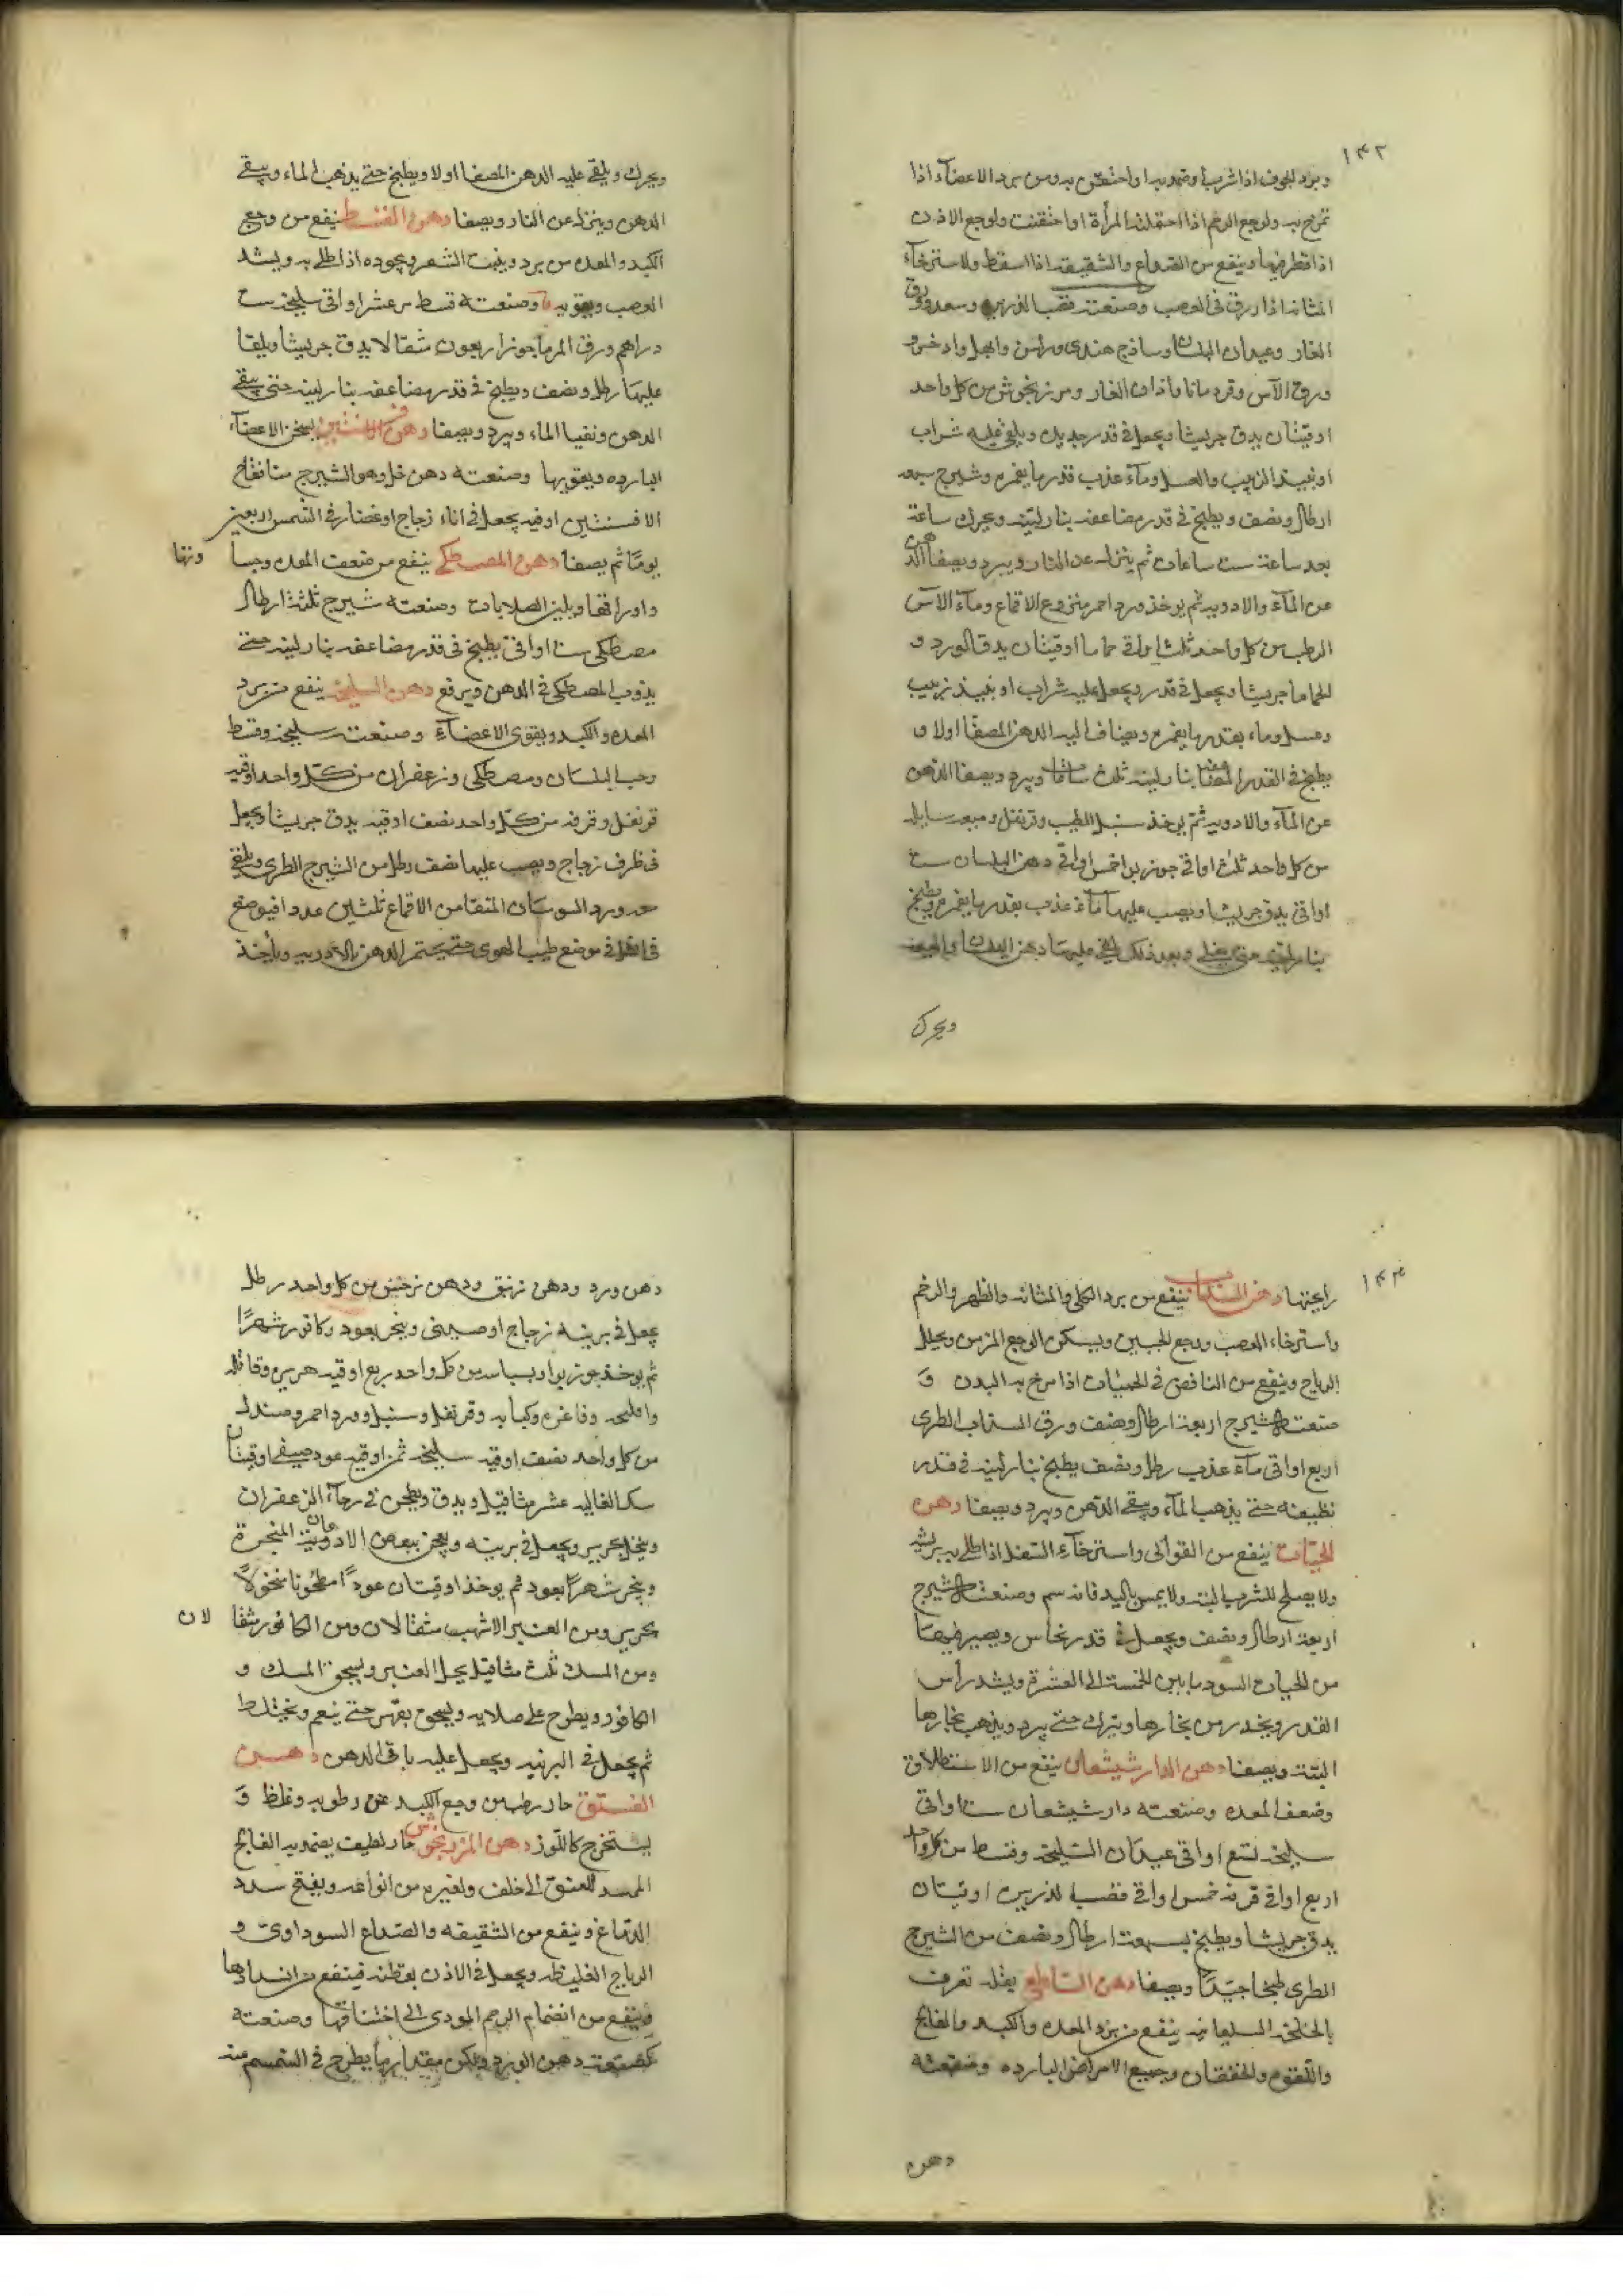 ١٤٢
وبرد الجوف اذا شرب اوضمد به او احتقن به ومن برد الاعضآء اذا
تمرخ به ولوجع الرحم اذا احتملته المرأة او احتقنت ولوجع الاذن
اذا قطر فيها وينفع من الصداع والشقيقه اذا اسقط ولاسترخآء
المثانه اذا زرق فى وصنعته قصب الذريره وسعد وورق
الغار وعيدان البلسان وساذج هندى وراسن وابهل واذخر و
ورق الآس وقردمانا واذان الفار ومرزنجوش من كل واحد
اوقيتان يدق جريشا ويجعل فى قدر جديد ويلقى عليه شراب
او نبيذ الزبيب والعسل ومآء عذب قدر ما يغمره وشيرج سبعه
ارطال ونصف ويطبخ فى قدر مضاعفه بنار لينه ويحرك ساعة
بعد ساعة ست ساعات ثم ينزل عن النار ويبرد ويصفا الدهن
عن المآء والادويه ثم يوخذ ورد احمر منزوع الاقماع ومآء الآس
الرطب من كل واحد ثلث اواق حماما اوقيتان يدق الورد و
الحماما جريشا ويجعل فى قدر ويجعل عليه شراب او نبيذ زبيب
وعسل وماء بقدر ما يغمره ويضاف اليه الدهن المصفا اولا و
يطبخ فى القدر المضاعفه بنار لينه ثلث ساعات ويبرد ويصفا الدهن
عن المآء والادويه ثم يوخذ سنبل الطيب وقرنفل وميعه سايله
من كل واحد ثلث اواقى جوزبوا خمس اواقى دهن البلسان ست
اواقى يدق جريشا ويصب عليها مآء عذب بقدر ما يغمره ويطبخ
بنار لينه حتى يغلى وبعد ذلك يلقى عليها دهن البلسان والميعه
ويحرك
ويحرك ويلقى عليه الدهن المصفا اولا ويطبخ حتى يذهب الماء ويبقى
الدهن وينزل عن النار ويصفا دهن القسط ينفع من وجع
الكبد والمعده من برد وينبت الشعر ويجوده اذا طلى به ويشد
العصب ويقويه وصنعته قسط مر عشر اواقى سليخه ست
دراهم ورق المرماحوز اربعون مثقالا يدق جريشا ويلقا
عليها رطل ونصف ويطبخ فى قدر مضاعفه بنار لينه حتى يبقى
الدهن ونفيا الماء ويبرد ويصفا دهن الافسنتين يسخن الاعضآء
البارده ويقويها وصنعته دهن خل وهو الشيرج منا فقاح
الافسنتين اوقيه يجعل فى اناء زجاج او غضار فى الشمس اربعين
يومًا ثم يصفا دهن المصطكى ينفع من ضعف المعده وجسا
ونها
واورامها ويلين الصلابات وصنعته شيرج ثلثة ارطال
مصطكى ست اواقى يطبخ فى قدر مضاعفه بنار لينه حتى
يذوب المصطكى فى الدهن ويرفع دهن السليخه ينفع من برد
المعده والكبد ويقوى الاعضآء وصنعته سليخه وقسط
وحب البلسان ومصطكى وزعفران من كل واحد اوقيه
قرنفل وقرفه من كل واحد نصف اوقيه يدق جريشا ويجعل
فى ظرف زجاج ويصب عليها نصف رطل من الشيرج الطرى ويلقى
معه ورد السوسان المنقا من الاقماع ثلثين عددا فيوضع
فى الظل فى موضع طيب الهوى حتى يختمر الدهن بالادويه ويأخذ
١٤٣
رايحتها دهن السذاب ينفع من برد الكلى والمثانه والظهر والرحم
واسترخاء العصب ووجع الجنبين ويسكن الوجع المزمن ويحلل
الرياح وينفع من النافض فى الحميات اذا مرخ به البدن وَ
صنعته شيرج اربعة ارطال ونصف ورق السذاب الطرى
اربع اواقى مآء عذب رطل ونصف يطبخ بنار لينه فى قدر
نظيفه حتى يذهب المآء ويبقى الدهن ويبرد ويصفا دهن
الحيّات ينفع من القوابى واسترخآء السفل اذا طلى به
ولا يصلح للشرب البته ولا يمس باليد فانه سم وصنعته شيرج
اربعة ارطال ونصف ويجعل فى قدر نحاس ويصير فيها
من الحيات السود مابين الخمسة الى العشرة ويشد رأس
القدر ويحذر من بخارها ويترك حتى يبرد ويذهب بخارها
البتة ويصفا دهن الدارشيشعان ينفع من الاستطلاق
وضعف المعده وصنعته دارشيشعان ست اواقى
سليخه تسع اواقى عيدان السليخه وقسط من كل واحد
اربع اواقى قرفه خمس اواقى قصب الذريره اوقيتان
يدق جريشا ويطبخ بسبعة ارطال ونصف من الشيرج
الطرى طبخا جيّدًا ويصفا دهن الساطع يعرف
بالخلخه السليمانيه ينفع من برد المعده والكبد والفالج
واللقوه والخفقان وجميع الامراض البارده وصنعته
دهن
دهن ورد ودهن زنبق ودهن نرجس من كل واحد رطل
يجعل فى برنيه زجاج او صينى ويبخر بعود وكافور شهرًا
ثم يوخذ جوزبوا وبسباسه من كل واحد ربع اوقيه هرس وقاقله
وفاغره وكبابه وقرنفل وسنبل وورد احمر وصندل
من كل واحد نصف اوقيه سليخه ثمن اوقيه عود صيفى اوقيتان
سك الغاليه عشر مثاقيل ويدق ويطحن فى رحآء الزعفران
وينخل بحرير ويجعل فى برنيه ويعجن ببعض الادهان المبخرة
ويبخر شهرًا بعود ثم يوخذ اوقيتان عودًا مطحونا منخولاً
بحرير ومن العنبر الاشهب مثقالان ومن الكافور مثقا
لان
ومن المسك ثلث مثاقيل يحل العنبر ويسحق المسك و
الكافور ويطرح على صلايه ويسحق بفهر حتى ينعم ويختلط
ثم يجعل فى البرنيه ويجعل عليه باقى الدهن دهن
الفستق حار رطب من وجع الكبد عن رطوبه وغلظ وَ
يستخرج كاللوز دهن المرزنجوش حار لطيف يضمد به الفالج
الممد للعنق الى خلف ولغيره من انواعه ويفتح سدد
الدماغ وينفع من الشقيقه والصداع السوداوى و
الرياح الغليظه ويجعل فى الاذن بقطنه فينفع من انسدادها
وينفع من انضمام الرحم المودى الى اختناقها وصنعته
كصنعت دهن الورد ويكون مقدار ما يطرح فى السمسم منه